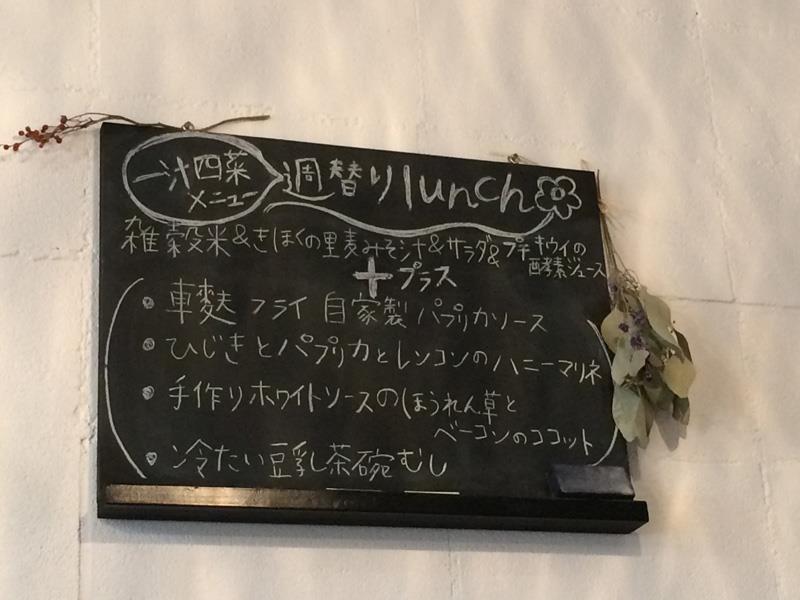 一汁四菜
メニュー
週替りlunch
雑穀米&きほくの里麦みそ汁&サラダ&プチキウイの
酵素ジュース
+プラス
・車麩フライ 自家製パプリカソース
・ひじきとパプリカとレンコンのハニーマリネ
・手作りホワイトソースのほうれん草と
ベーコンのココット
・冷たい豆乳茶碗むし